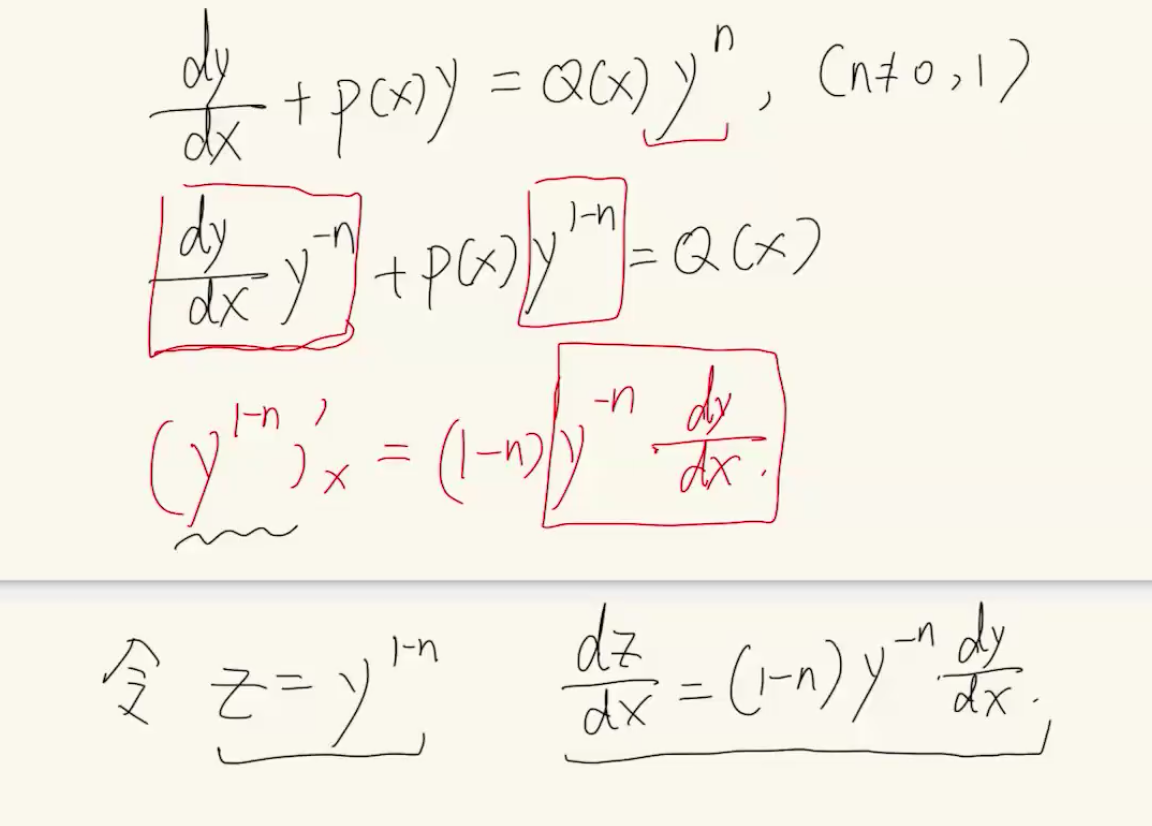 dy/dx + p(x)y = Q(x) y^n , (n≠0,1)
dy/dx y^{-n} + p(x) y^{1-n} = Q(x)
(y^{1-n})'_x = (1-n) y^{-n} dy/dx.
令 z = y^{1-n} dz/dx = (1-n) y^{-n} dy/dx.